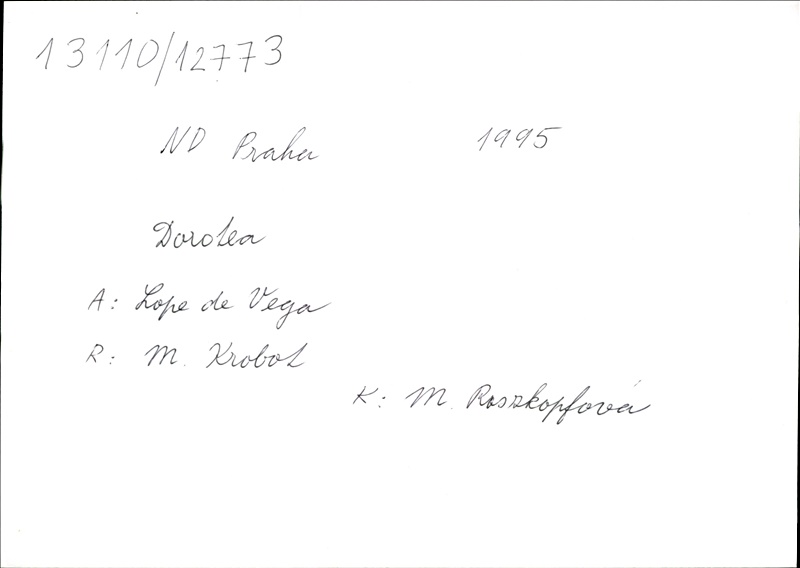 13110/12773
ND Praha 1995
Dorotea
A: Lope de Vega
R: M. Krobot
K: M. Roszkopfová